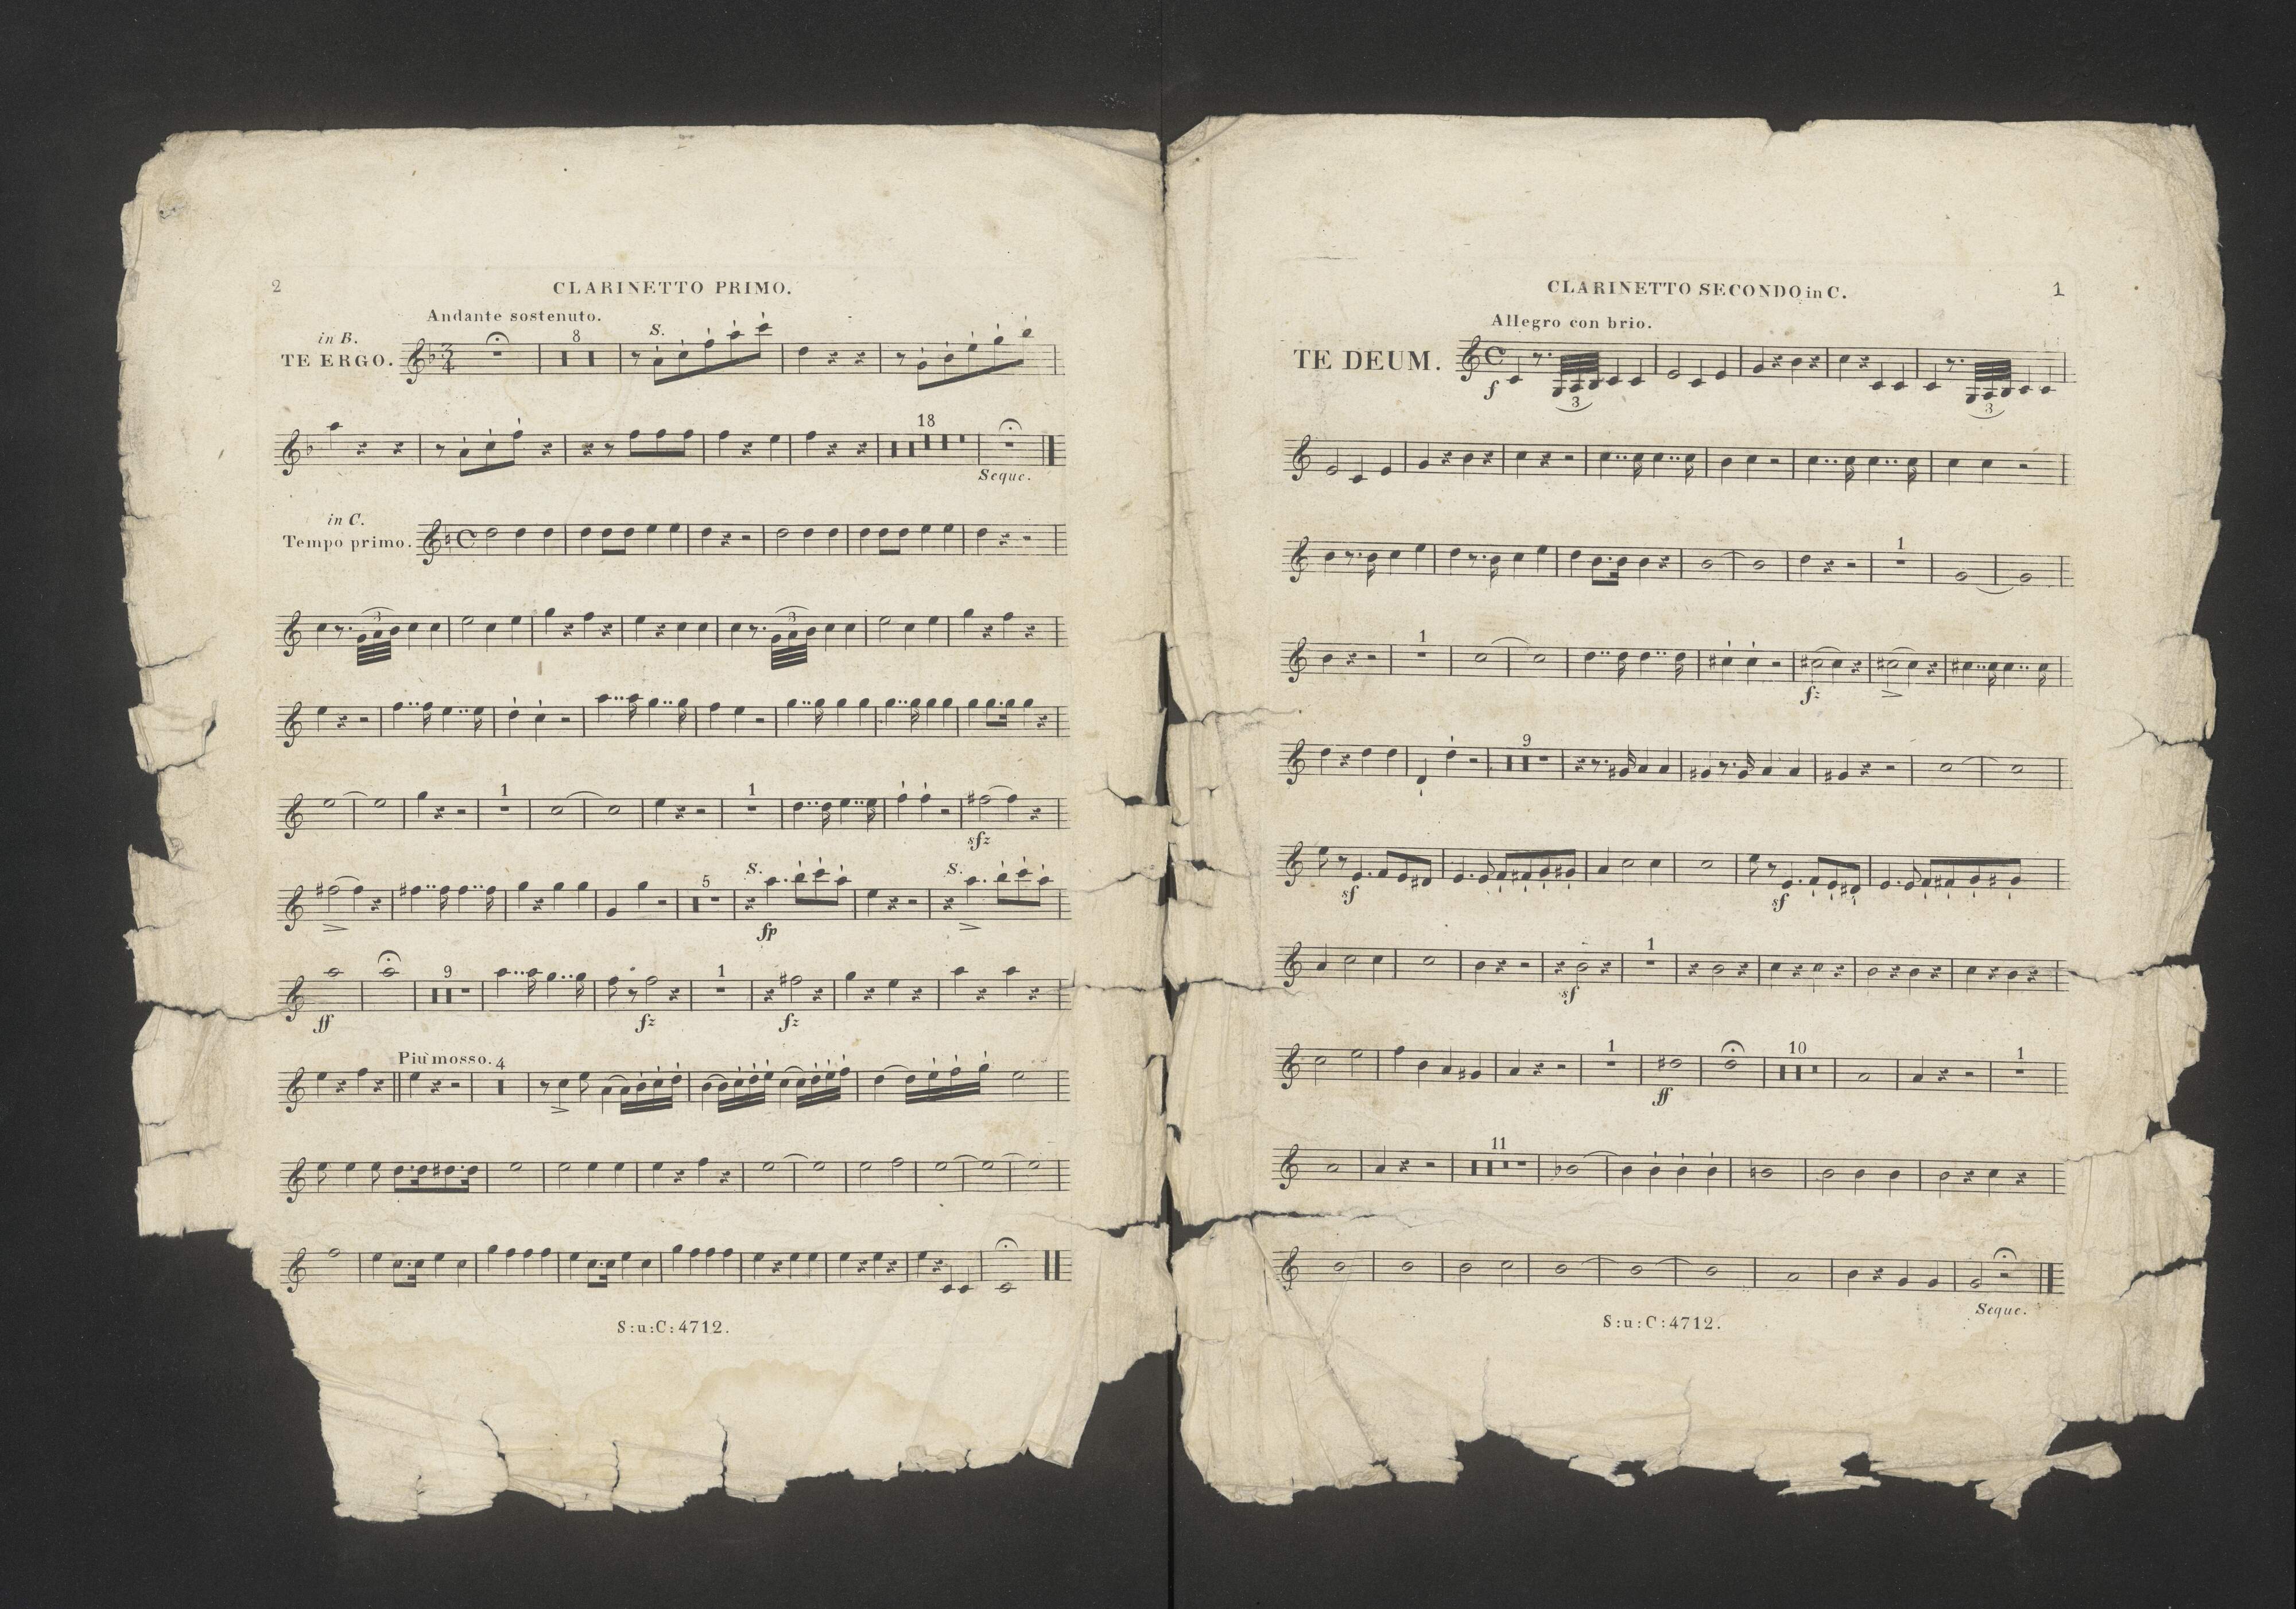 2
CLARINETTO PRIMO.
Andante sostenuto.
in B.
TE ERGO.
3
4
8
S.
18
Seque.
in C.
Tempo primo.
3
3
1
1
sfz
5
S.
S.
fp
9
1
ff
fz
fz
Più mosso. 4
S:u:C:4712.
CLARINETTO SECONDO in C.
1
Allegro con brio.
TE DEUM.
f
3
3
1
1
fz
9
sf
sf
1
sf
1
10
1
ff
11
Seque.
S:u:C:4712.